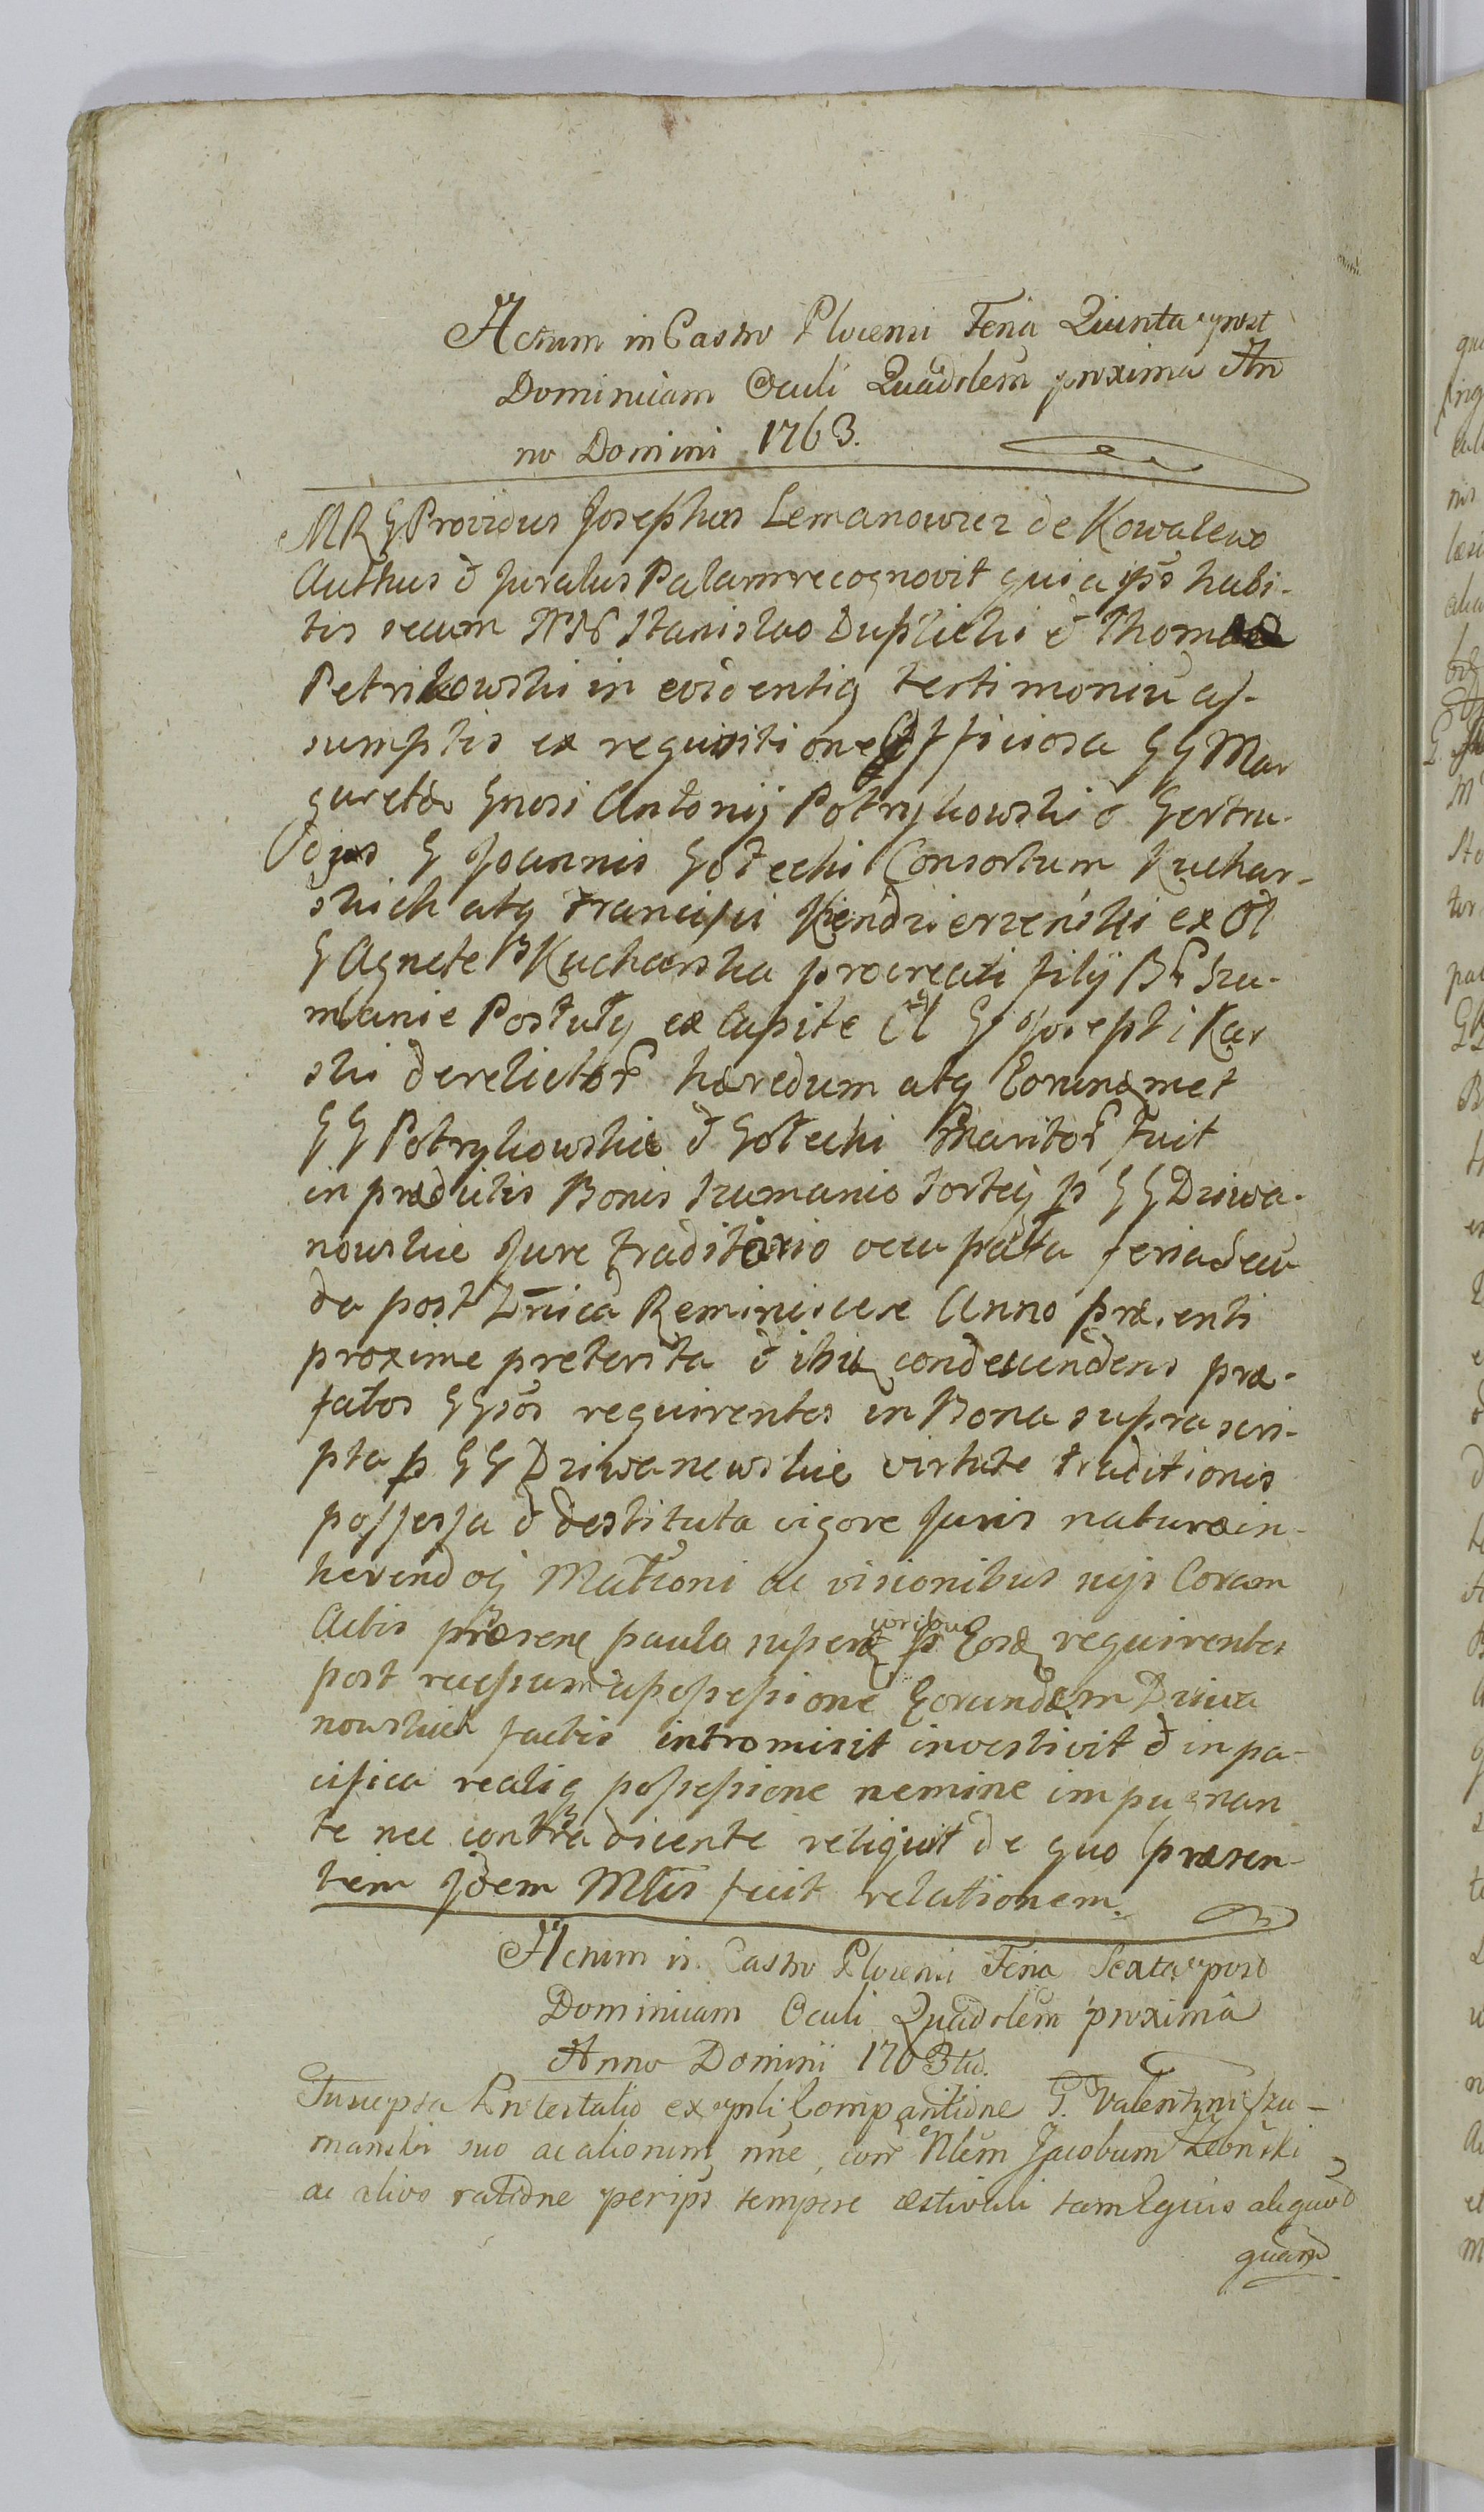 Actum in Castro Plocensi Feria Quinta post
Dominicam Oculi Quadolem proxima An
no Domini 1763.
MRG Providus Josephus Lemanowicz de Kowalewo
Authus & Juratus Palam recognovit quia ips habi-
tis secum NN Stanislao Duplicki & Thoma
Petrikowski in evidentiq testimoniu as-
sumptis ex requisitione Officiosa GG Mar
garetæ Gnosi Antonij Potrykowski & Gertru-
dis G Joannis Gołecki Consortum Kuchar-
skich atq Francisci Kiendzierzenski ex Ol
G Agnete Kucharska procreati filij BG Szu-
manie Postułq ex Capite Ol G Josephi Kar
ski derelictor hæredum atq Eorundmet
GG Potrykowskie & Gołecki Maritor fuit
in prædictis Bonis Szumanie Sorteq p GG Dziwa-
nowskie Jure traditorio occupata feria secu
da post Dnicã Reminiscere Anno præsenti
proxime preterita & ibiq condescendens præ-
fatos GG requirentes in Bona supra scri-
pta p GG Dziwanowskie virtute traditionis
possessa & destituta vigore Juris naturæ in-
hærendoq Mationi ac visionibus nijs Coram
Actis præsene paula super p Eosd requirentes
coribus
post recessum a possessione Eorundem Dziwa
nowskich factis intromisit investivit & in pa-
cifica realiq possessione nemine impugnan
te nec contradicente reliquit de quo præsen-
tem Jdem Mlis fecit relationem.
Actum in Castro Plocensi Feria Sexta post
Dominicam Oculi Quadolem proxima
Anno Domini 1763tio.
Suscepta Protestatio ex psli Comparitione G. Valentini Szu-
manski suo ac aliorum nne, con Nlem Jacobum Zebrski
ac alivo ratione perips tempore æstivali tam Equis aliquod
quam